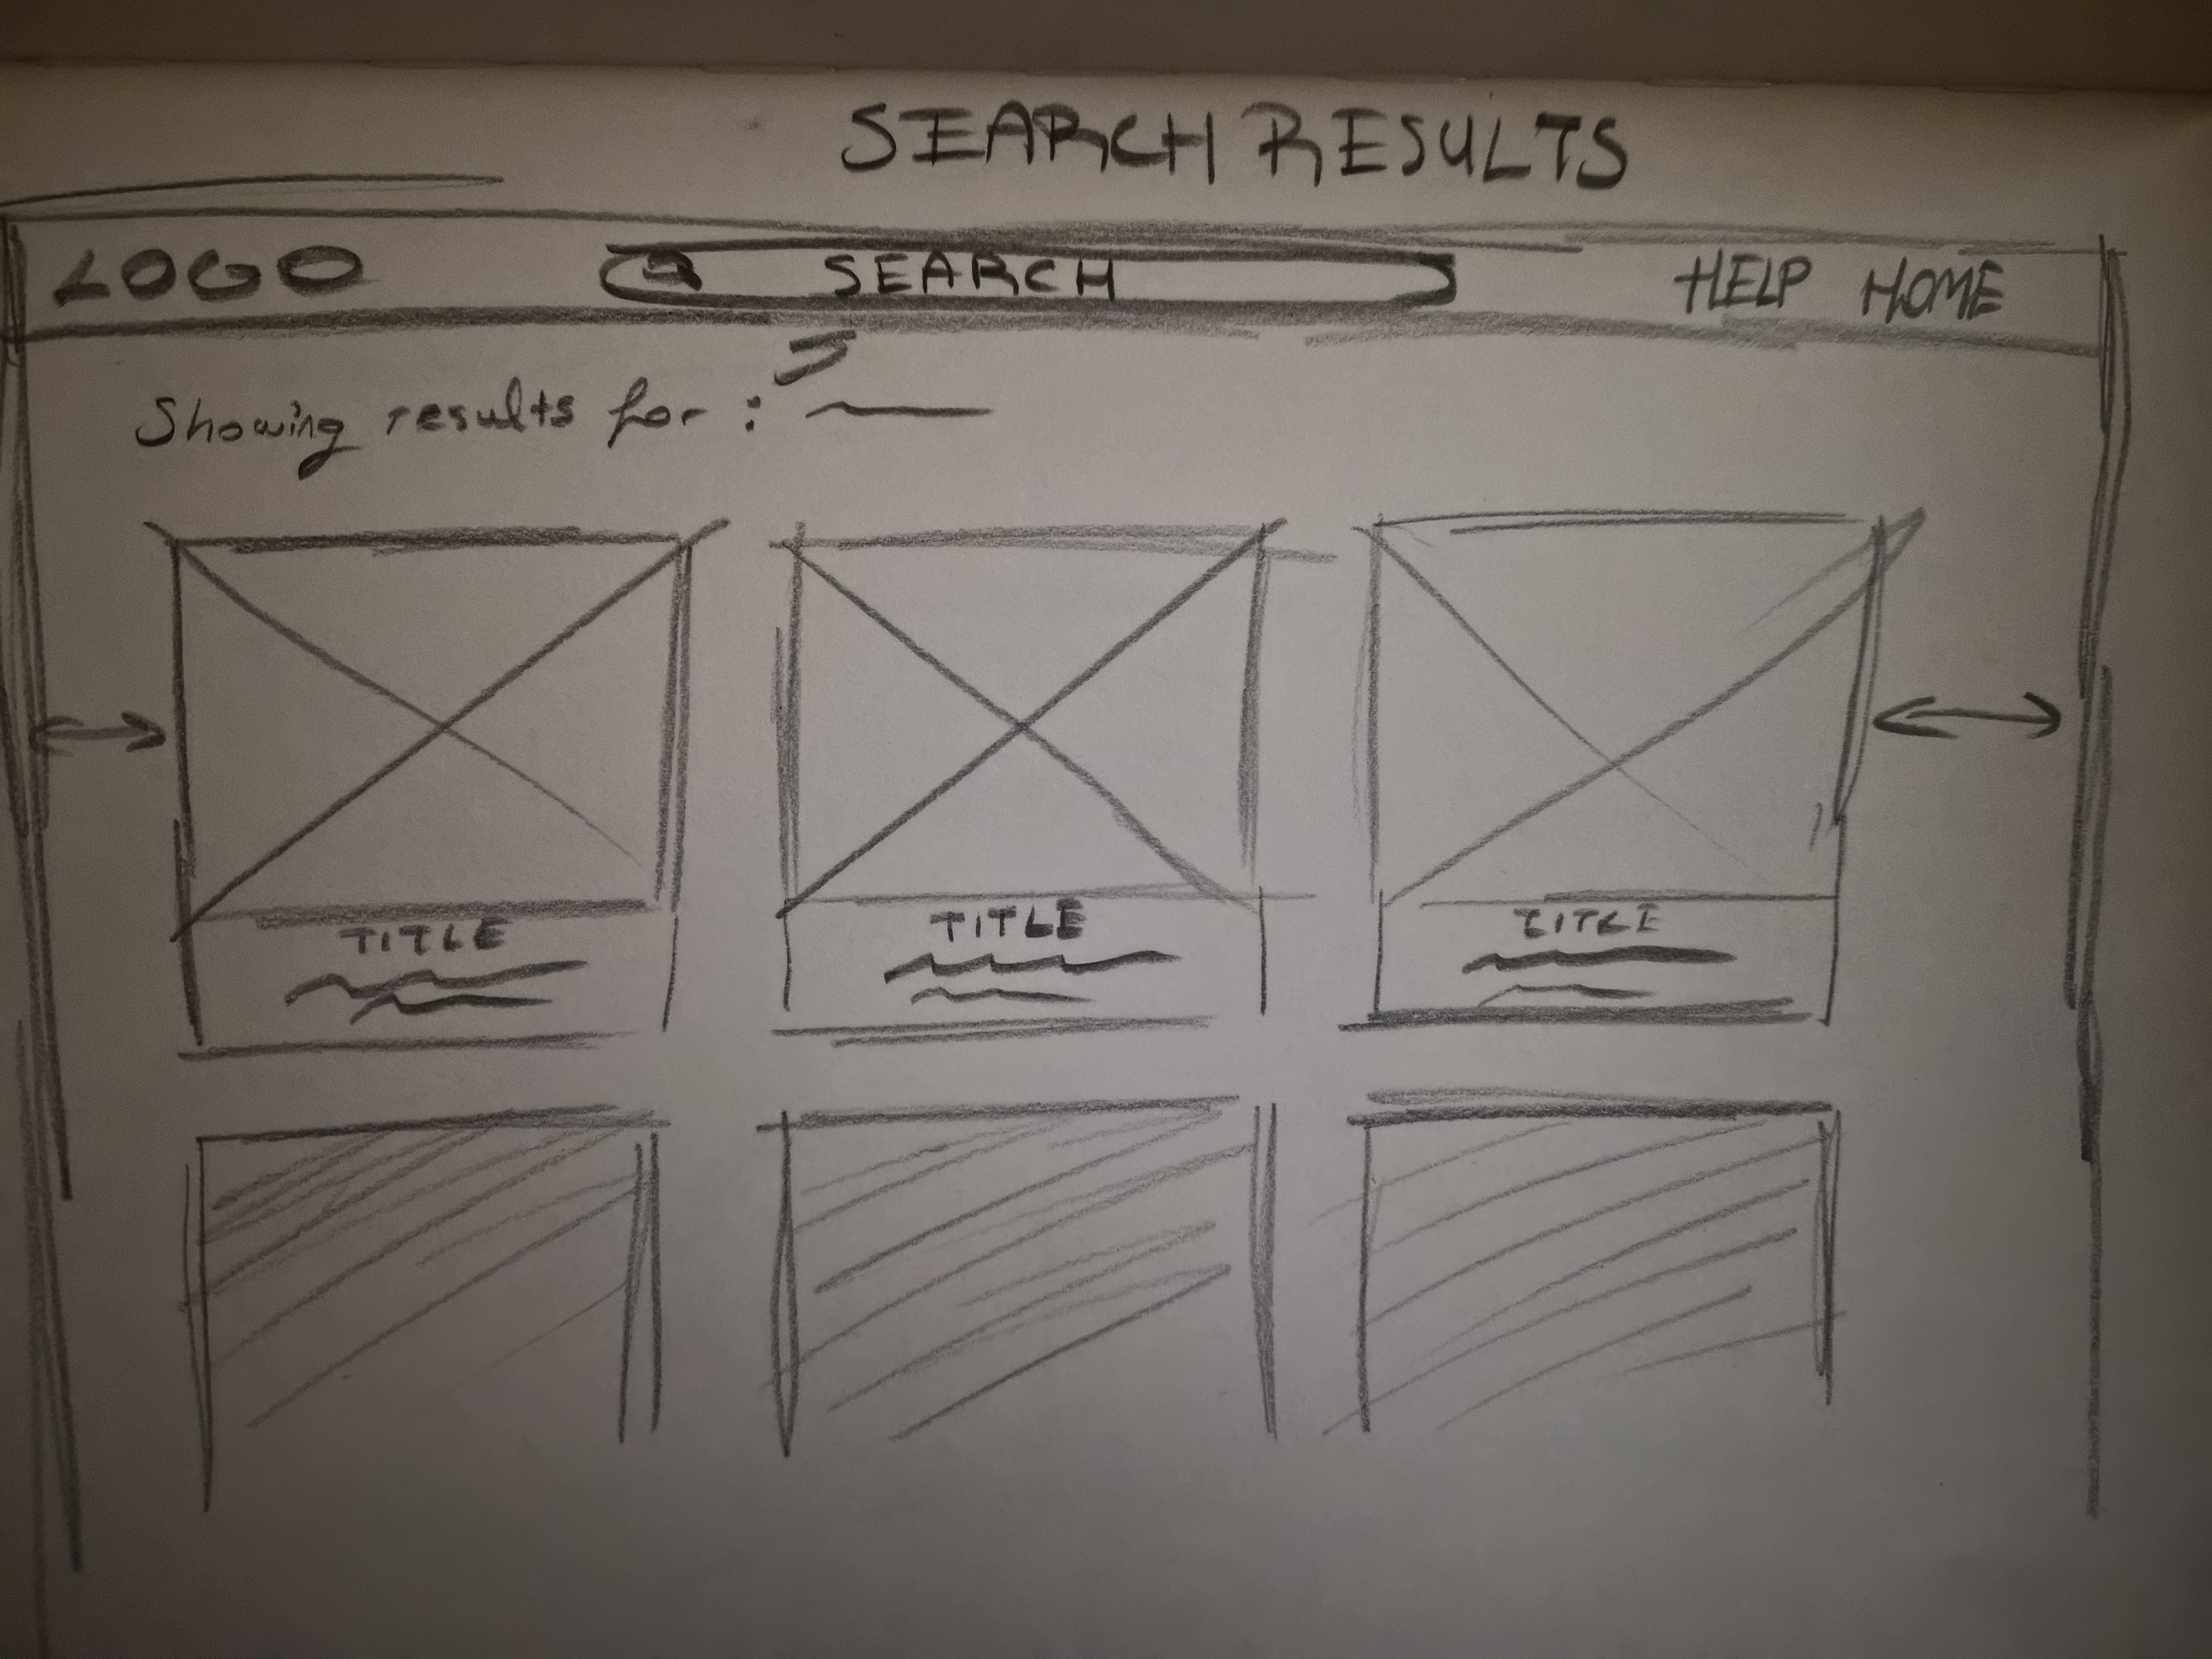 SEARCH RESULTS
LOGO SEARCH HELP HOME
Showing results for :
TITLE TITLE TITLE